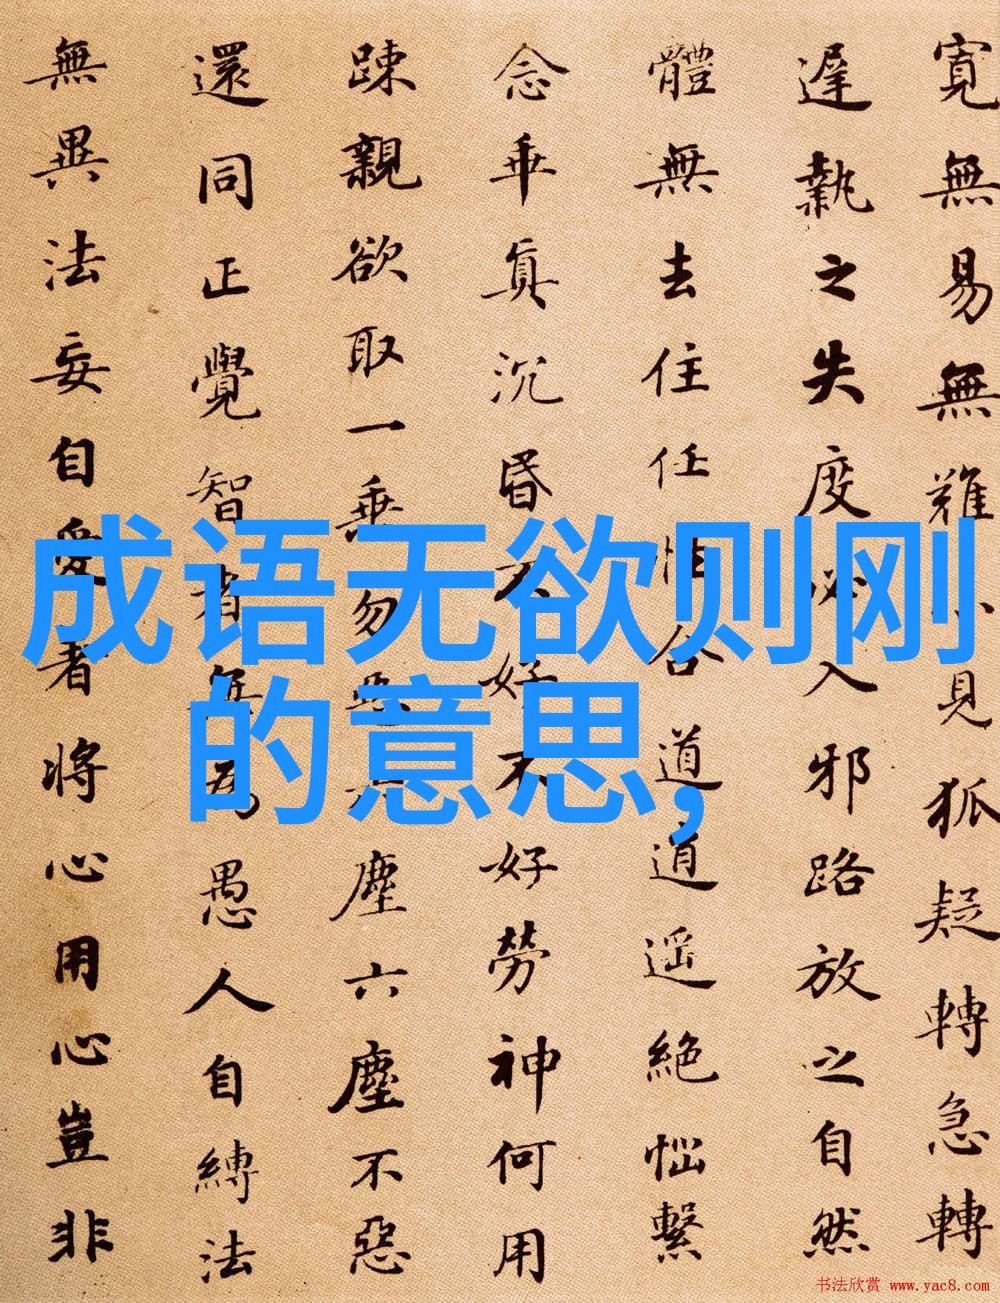 成语无欲则刚
的意思,
寬無易無難小見狐疑轉急轉
遲執之失度必入邪路放之自然
體無去住任性合道逍遥絕惱繫
念乖真沉昏不好不好勞神何用
踈親欲取一乘勿惡六塵六塵不惡
還同正覺智者無為愚人自縛法
無異法妄自愛著將心用心豈非
书法欣赏 www.yac8.com